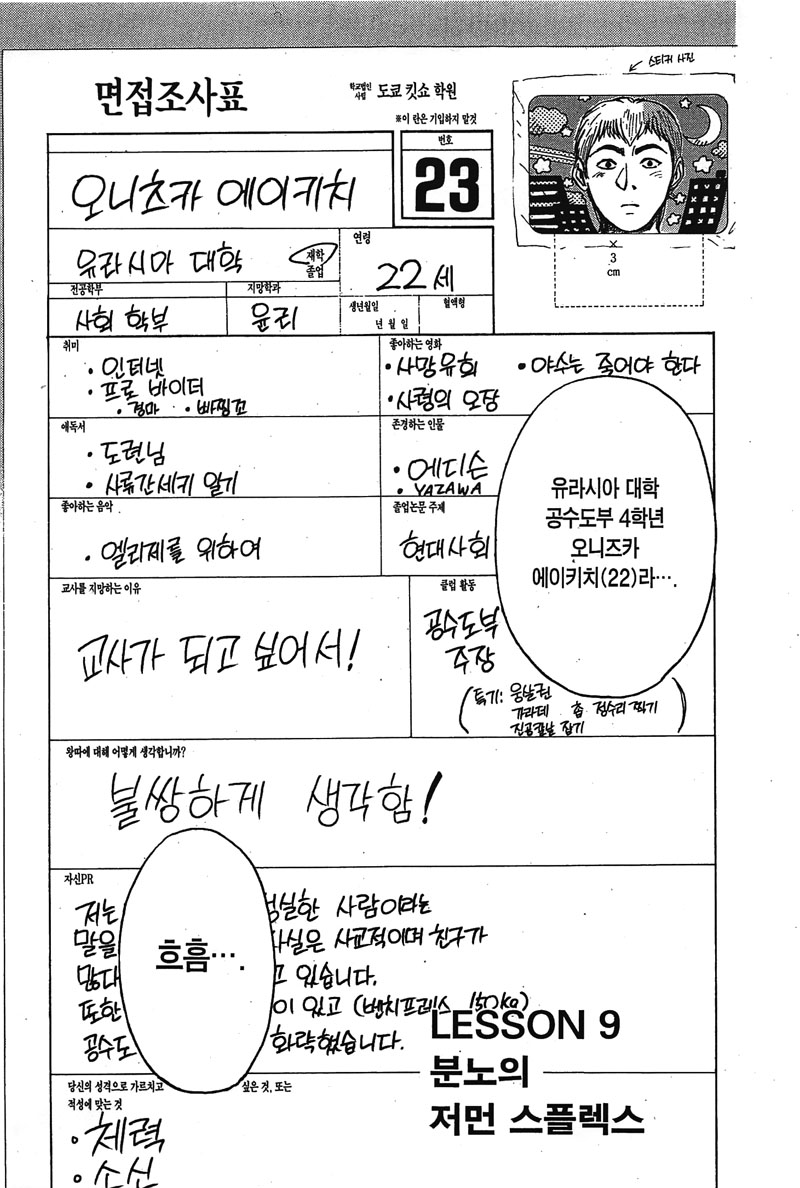 스티커 사진
면접조사표
학교법인 사립 도쿄 킷쇼 학원
※이 란은 기입하지 말것
번호
23
오니츠카 에이키치
× 3 cm
유라시아 대학
재학
졸업
연령
22세
전공학부
사회 학부
지망학과
윤리
생년월일
년 월 일
혈액형
취미
• 인터넷
• 프로 바이터
• 경마 • 빠찡꼬
좋아하는 영화
• 사망유희 • 야수는 죽어야 한다
• 사령의 오장
애독서
• 도련님
• 사류간세키 일기
존경하는 인물
• 에디슨
• YAZAWA
유라시아 대학
공수도부 4학년
오니즈카
에이키치(22)라….
좋아하는 음악
• 엘리제를 위하여
졸업논문 주제
현대사회
교사를 지망하는 이유
교사가 되고 싶어서!
클럽 활동
공수도부
주장
(특기: 웅살권
가라데 춉 정수리 찍기
진공칼날 잡기)
왕따에 대해 어떻게 생각합니까?
불쌍하게 생각함!
자신PR
저는 성실한 사람이라는
말을 사실은 사교적이며 친구가
많다 고 있습니다.
또한 이 있고 (벤치프레스 150kg)
공수도 활약했습니다.
흐흠….
LESSON 9
분노의
저먼 스플렉스
당신의 성격으로 가르치고 싶은 것, 또는
적성에 맞는 것
• 체력
• 소신